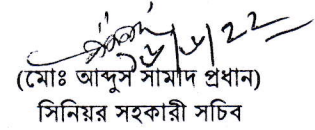 (মোঃ আব্দুস সামাদ প্রধান)
সিনিয়র সহকারী সচিব